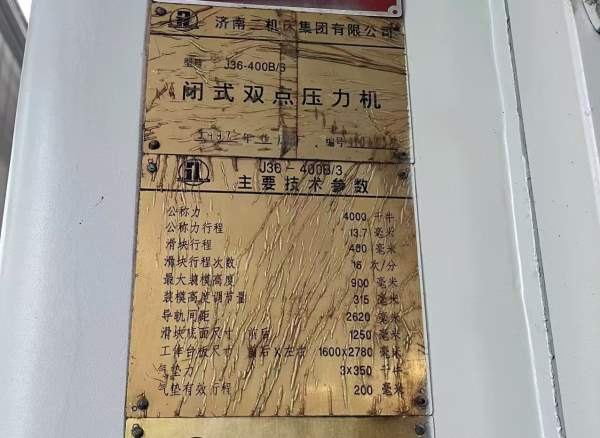 济南二机床集团有限公司
型号 J36-400B/3
闭式双点压力机
1997年 月 编号
J36-400B/3
主要技术参数
公称力 4000 千牛
公称力行程 13.7 毫米
滑块行程 460 毫米
滑块行程次数 16 次/分
最大装模高度 900 毫米
装模高度调节量 315 毫米
导轨间距 2620 毫米
滑块底面尺寸 前后 1250 毫米
工作台板尺寸 前后X左右 1600x2780 毫米
气垫力 3x350 千牛
气垫有效行程 200 毫米